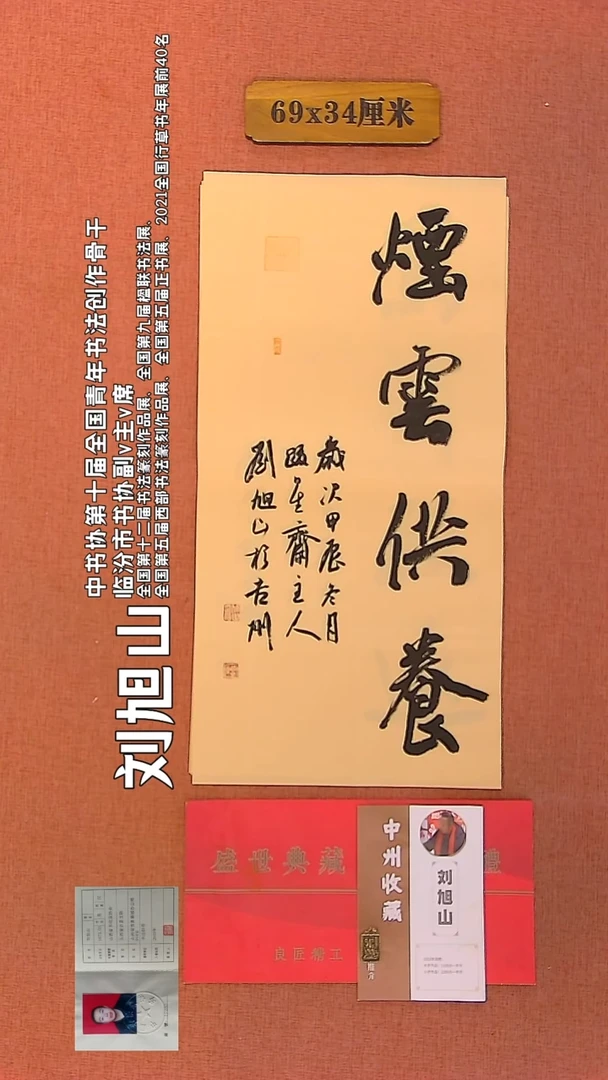 69x34厘米
煙雲供養
歲次甲辰冬月
齋主人
劉旭山於吉州
刘旭山
中书协第十届全国青年书法创作骨干
临汾市书协副v主v席
全国第十二届书法篆刻作品展、全国第九届楹联书法展、
全国第五届西部书法篆刻作品展、全国第五届正书展、2021全国行草书年展前40名
盛世典藏
禮
良匠精工
中州收藏
刘旭山